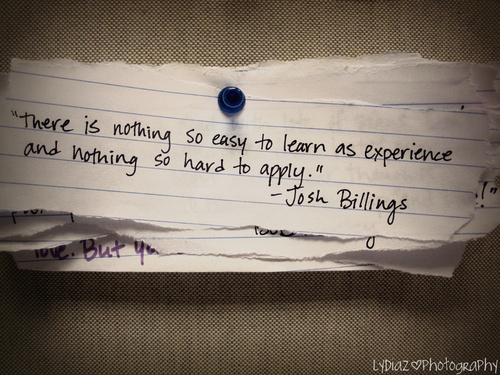 "There is nothing so easy to learn as experience
and nothing so hard to apply."
-Josh Billings
!"
love. But
LyDiaz♡Photography